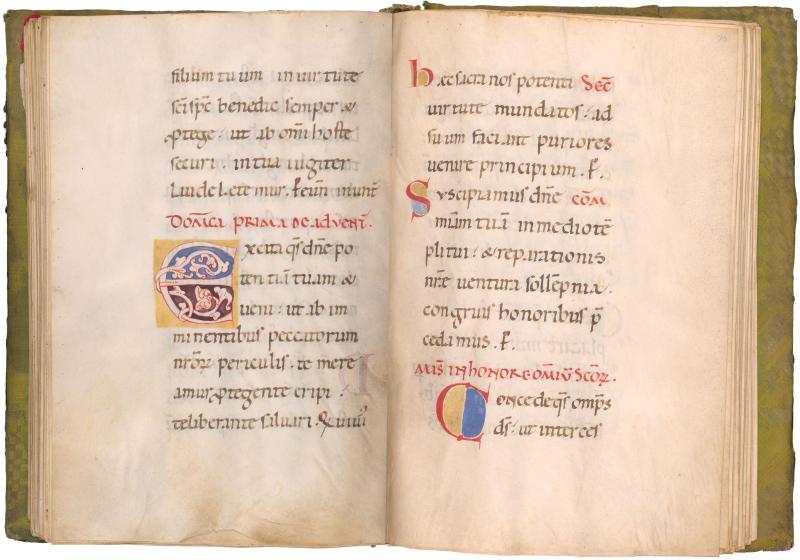 filium tuum in uirtute
sc̄i sp̄c benedic semper &
ꝓtege · ut ab om̄i hoste
securi · in tua iugiter
laude letemur. P̄ eun̄
DOM̄CA PRIMA DE ADVENT̄.
Excita qs̄ dn̄e po
tentiā tuam &
ueni · ut ab im
minentibus peccatorum
nr̄oꝝ periculis · te mere
amur ꝓtegente eripi ·
te liberante saluari · Q̄ uiuis
Hec sacra nos potenti SEC̄
uirtute mundatos · ad
suum faciant puriores
uenire principium . P̄.
Suscipiamus dn̄e COM̄
mīam tuā in medio tē
pli tui · & reparationis
nr̄e uentura sollēpnia ·
congruis honoribus p̄
cedamus . P̄.
MIS̄ IN HONORE OM̄IŪ SC̄OꝜ.
Concede qs̄ omp̄s
ds̄ · ut interces